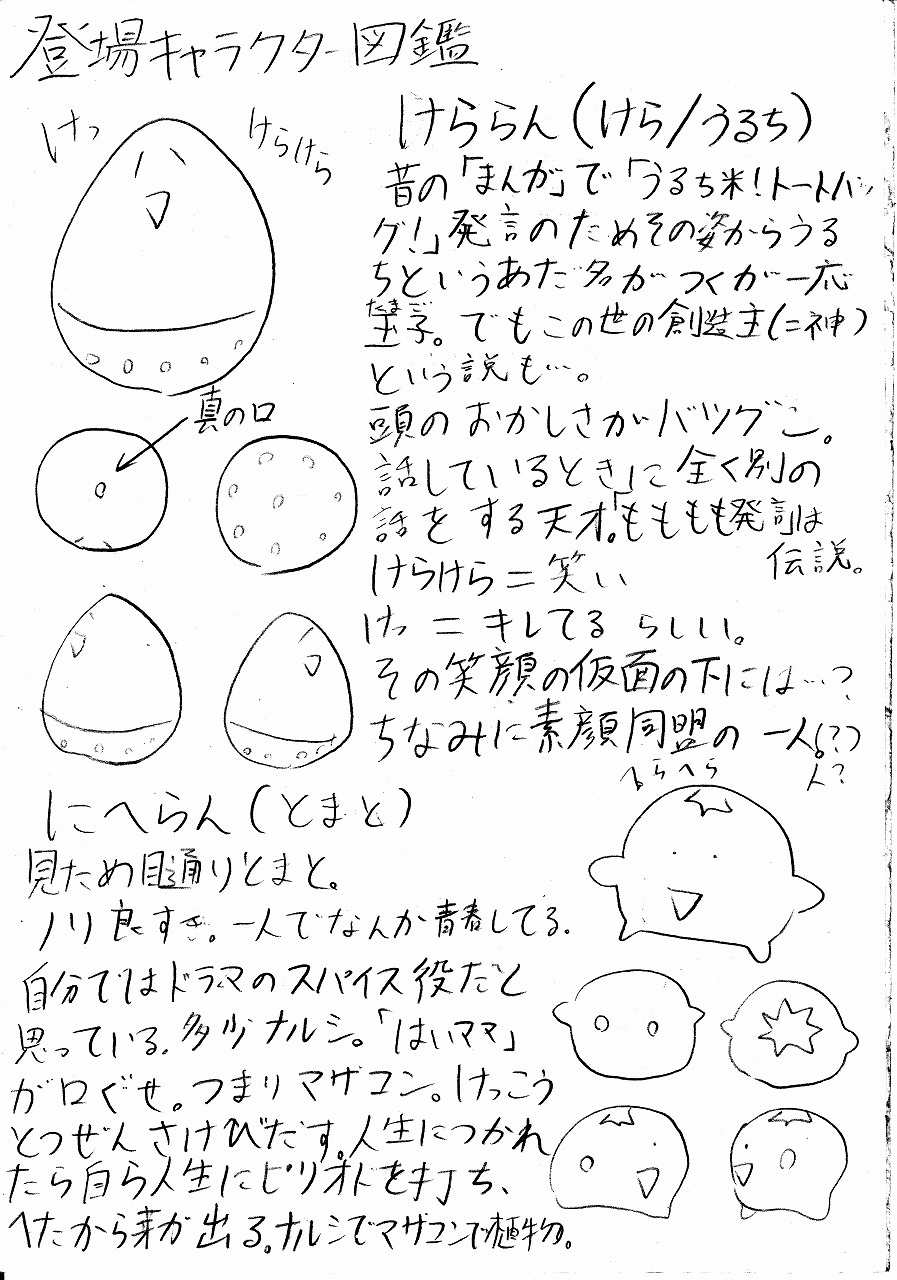 登場キャラクター図鑑
けっ
けらけら
けららん(けら/うるち)
昔の「まんが」で「うるち米!トートバッ
グ!」発言のためその姿からうる
ちというあだ名がつくが一応
たまご
玉子。でもこの世の創造主(=神)
という説も…。
真の口
頭のおかしさがバツグン。
話しているときに全く別の
話をする天才。「もももも発言」は
伝説。
けらけら=笑い
けっ=キレてる らしい。
その笑顔の仮面の下には…?
ちなみに素顔同盟の一人!??
人?
へらへら
にへらん(とまと)
見ため目通りとまと。
ノリ良すぎ。一人でなんか青春してる.
自分ではドラマのスパイス役だと
思っている.多少ナルシ。「はいママ」
が口ぐせ。つまりマザコン。けっこう
とつぜんさけびだす。人生につかれ
たら自ら人生にピリオドを打ち、
へたから芽が出る。ナルシでマザコンで植物。